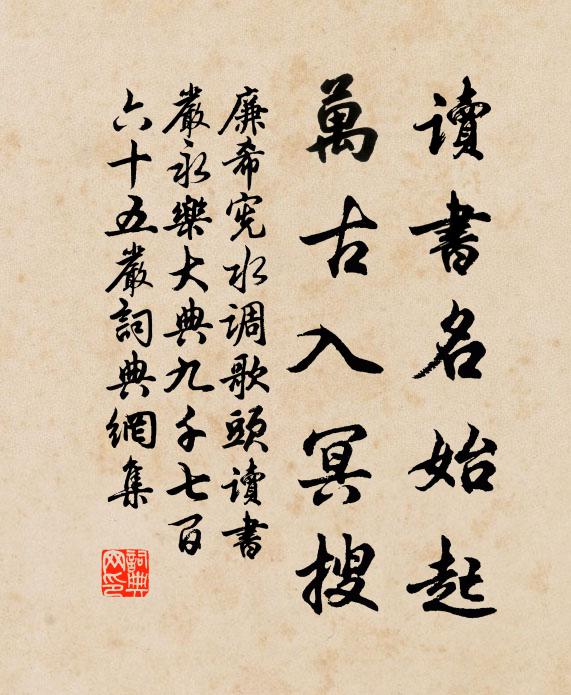 讀書名始起
萬古入冥搜
廉希宪水调歌頭讀書
嚴永樂大典九千七百
六十五嚴詞典網集
詞典
网印